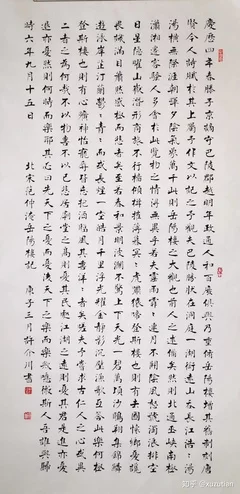 慶曆四年春滕子京謫守巴陵郡越明年政通人和百廢俱興乃重修岳陽樓增其舊制刻唐
賢今人詩賦於其上屬予作文以記之予觀夫巴陵勝狀在洞庭一湖銜遠山吞長江浩浩湯
湯橫無際涯朝暉夕陰氣象萬千此則岳陽樓之大觀也前人之述備矣然則北通巫峽南極
瀟湘遷客騷人多會於此覽物之情得無異乎若夫霪雨霏霏連月不開陰風怒號濁浪排空
日星隱曜山岳潛形商旅不行檣傾楫摧薄暮冥冥虎嘯猿啼登斯樓也則有去國懷鄉憂讒
畏譏滿目蕭然感極而悲者矣至若春和景明波瀾不驚上下天光一碧萬頃沙鷗翔集錦鱗
游泳岸芷汀蘭郁郁青青而或長煙一空皓月千里浮光躍金靜影沉璧漁歌互答此樂何極
登斯樓也則有心曠神怡寵辱皆忘把酒臨風其喜洋洋者矣嗟夫予嘗求古仁人之心或異
二者之為何哉不以物喜不以己悲居廟堂之高則憂其民處江湖之遠則憂其君是進亦憂
退亦憂然則何時而樂耶其必曰先天下之憂而憂後天下之樂而樂歟噫微斯人吾誰與歸
時六年九月十五日 北宋范仲淹岳陽樓記 庚子三月許介川書